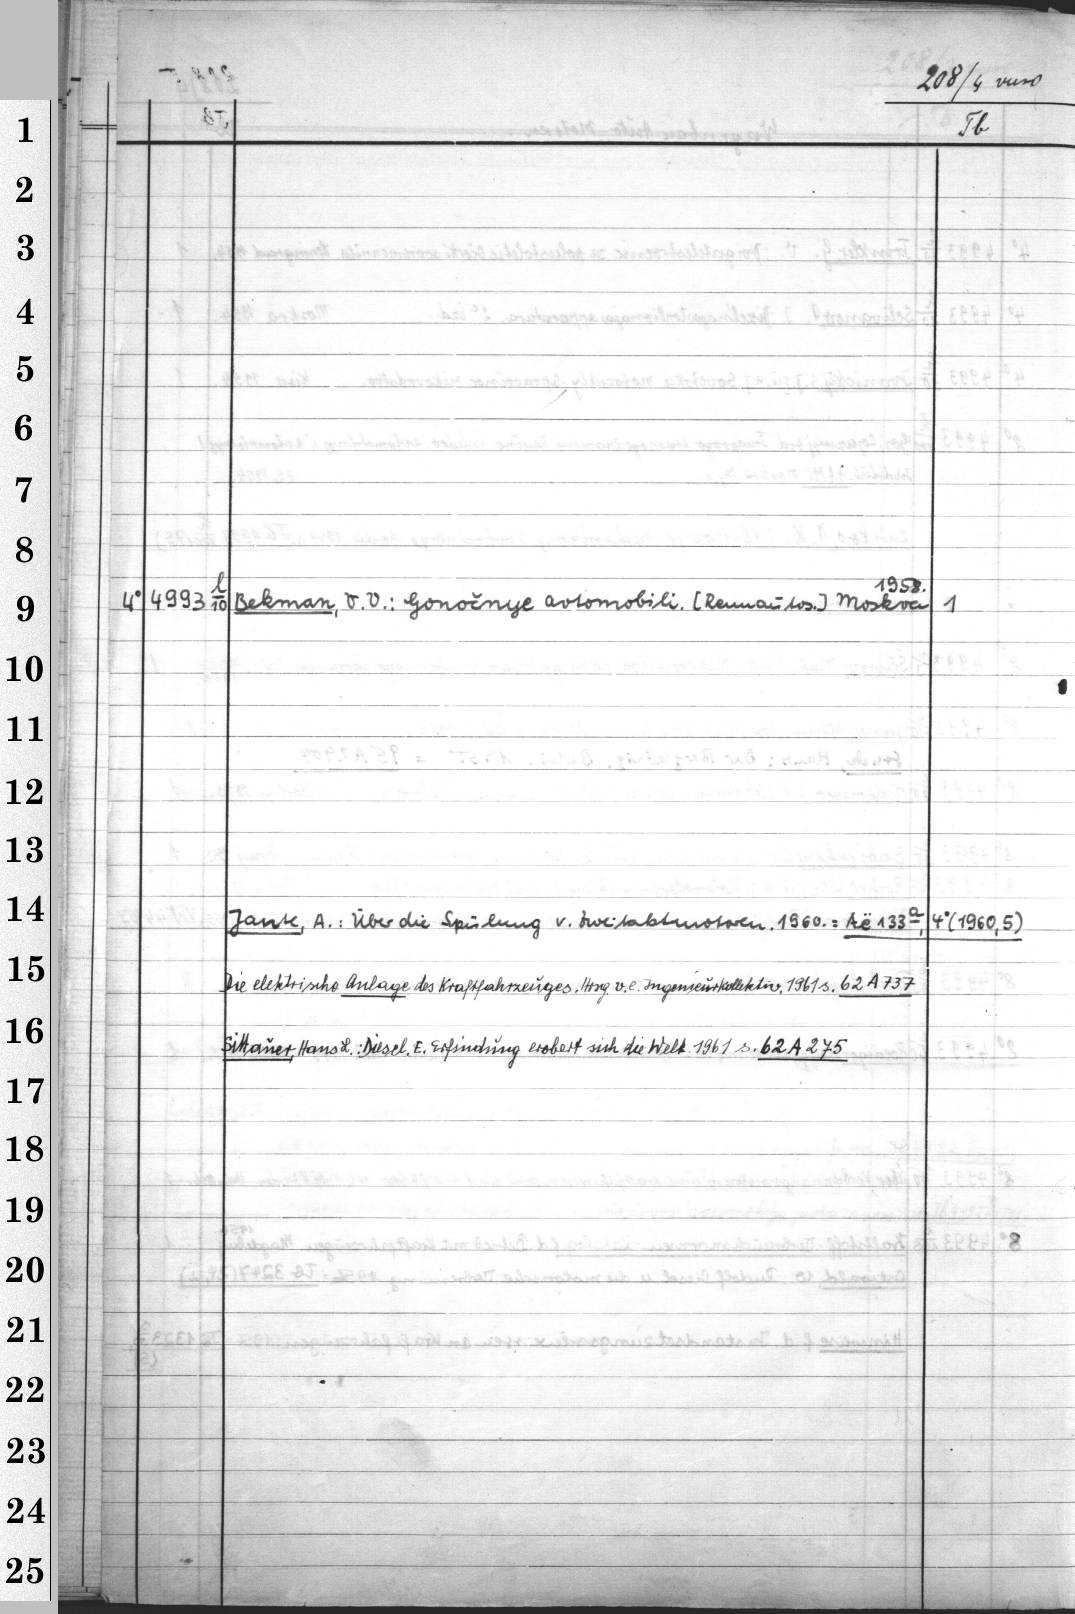 208/4 verso
Tb
1
2
3
4
5
6
7
8
9 4° 4993 l/10 Bekman, V.V.: Gonočnye avtomobili. [Rennautos.] Moskva 1958. 1
10
11
12
13
14 Jante, A.: Über die Spülung v. Zweitaktmotoren. 1960. = Aë 133a, 4° (1960,5)
15 Die elektrische Anlage des Kraftfahrzeuges. Hrsg. v. e. Ingenieurkollektiv. 1961 s. 62 A 737
16 Sittauer, Hans L.: Diesel. E. Erfindung erobert sich die Welt. 1961 s. 62 A 275
17
18
19
20
21
22
23
24
25